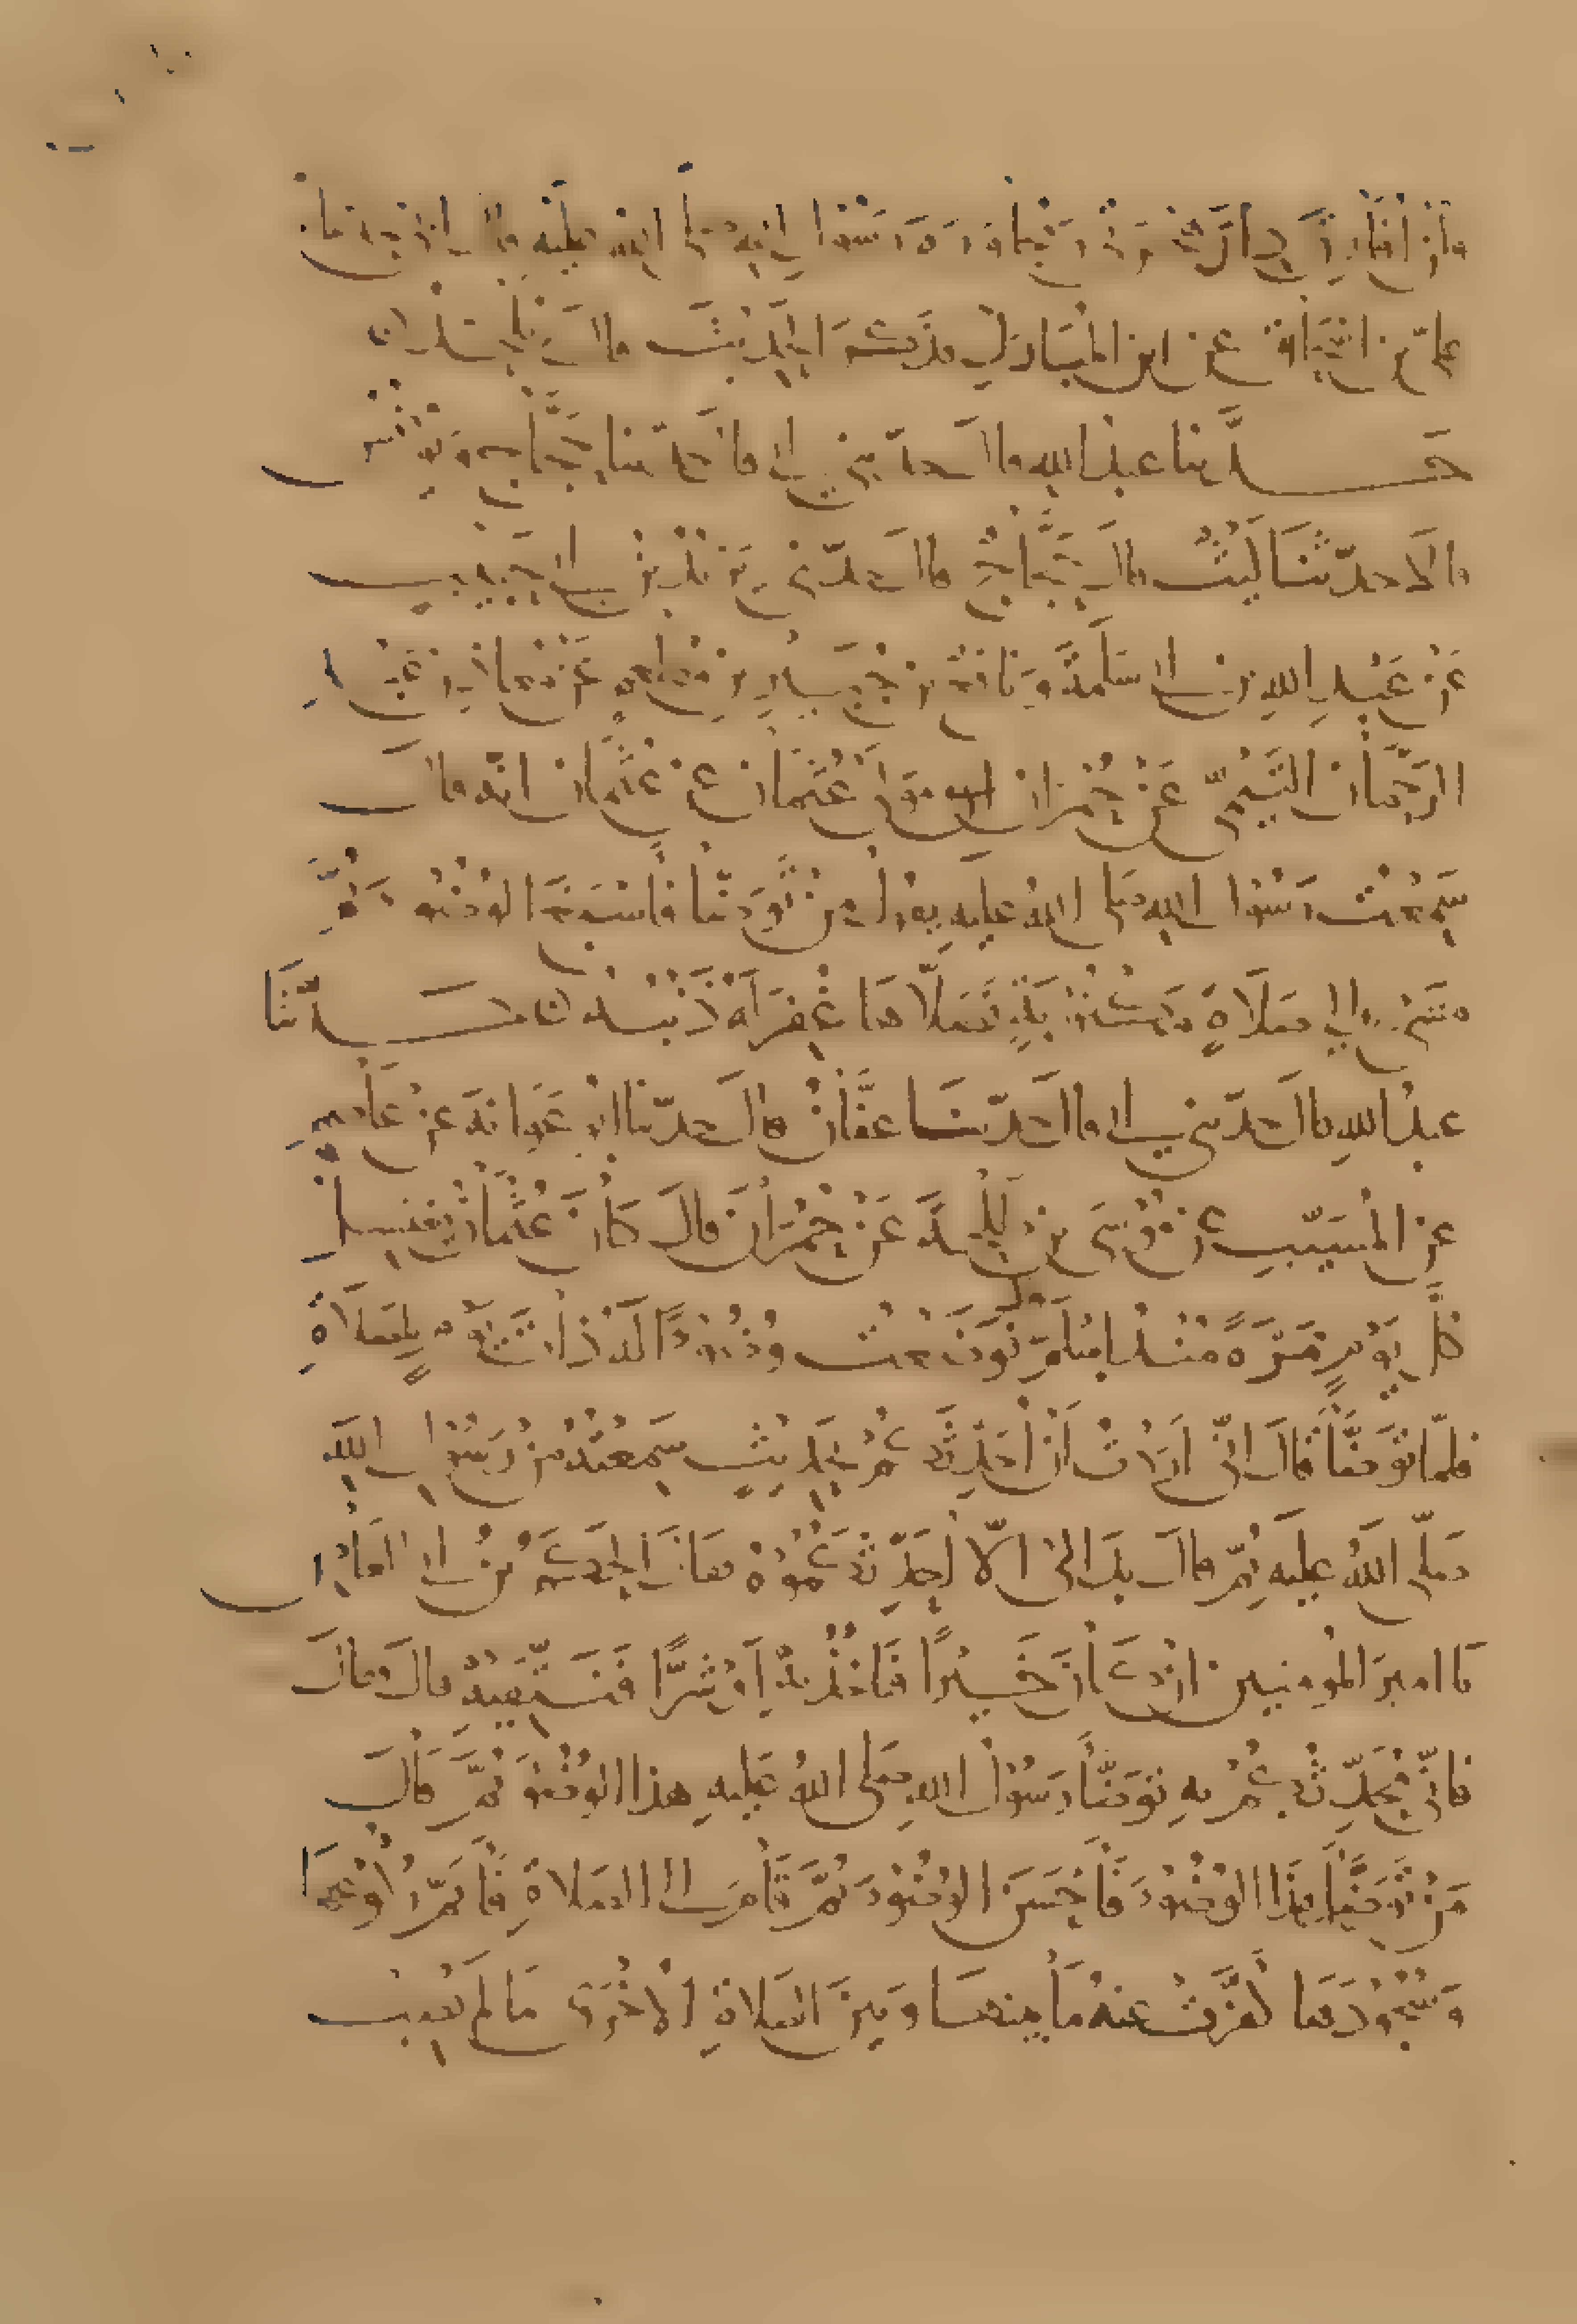 علي بن اسحاق عن ابن المبارك فذكر الحديث قال
حدثنا عبد الله قال حدثني ابي قال حدثنا حجاج ويونس
قالا حدثنا ليث قال حجاج قال حدثني يزيد بن ابي حبيب
عَنْ عَبْدِ الله بن ابي سَلَمَة وَنَافع بن جُبَير بن مطعم عَنْ معاذ بن عَبْد
الرَّحْمان التَّيْمِيّ عَنْ حُمْران مَوْلَى عُثْمَان عَنْ عُثْمان انّه قال
سَمِعْتُ رَسُول الله صلى اللهُ عليه يقول من تَوَضّأ فَأسْبَغَ الوُضُو ثُمَّ
مَشَى الى صَلَاةٍ مَكْتُوبَةٍ فَصَلّاهَا غُفِرَ لَهُ ذَنْبُه حَدَّثَنَا
عبدُ اللهِ قال حدّثني ابي قال حدّثنا عفَّانُ قال حدّثنا ابو عَوانة عن عَاصِم
عن المُسَيّبِ عن مُوسَى بن طَلْحَةَ عَنْ حُمْرَانَ قَالَ كَانَ عُثْمَانُ يَغْتَسِلُ
كلَّ يَوْمٍ مَرَّةً مُنْذُ اسْلَمَ فَوَضَعْتُ وَضُوءًا لَهُ ذَات يَوْمٍ لِلصَلَاةِ
فلمّا تَوَضَّأَ قَالَ انّي ارَدْتُ أَنْ أُحَدِّثَكُمْ بِحَدِيْثٍ سَمِعْتُهُ مِنْ رَسُولِ اللَّهِ
صَلّى اللهُ عليه ثُمّ قال بدا لي الّا أحَدِّثَكُمُوهُ فقال الحَكَمُ بْنُ ابي العاص
يا اميرَ المُومنيين انْ كَانَ خَيْرًا فَنَاخُذُ بهِ اوْ شَرًّا فَنَتَّقِيهِ قال فقال
فانّي مُحَدّثُكُمْ به تَوَضَّأَ رَسُولُ اللهِ صَلى اللهُ عَليهِ هذا الوُضُوَ ثُمَّ قَالَ
مَنْ تَوَضَّأَ هذا الوُضُوءَ فَأَحْسَنَ الوُضُوءَ ثُمَّ قَامَ الى الصَلاةِ فَأَتَمَّ رُكُوعَهَا
وَسُجُودَهَا كَفَّرَتْ عنهُ مَا بينهَا وَبَيْنَ الصَلاةِ الاُخْرَى مَا لم يُصِبْ